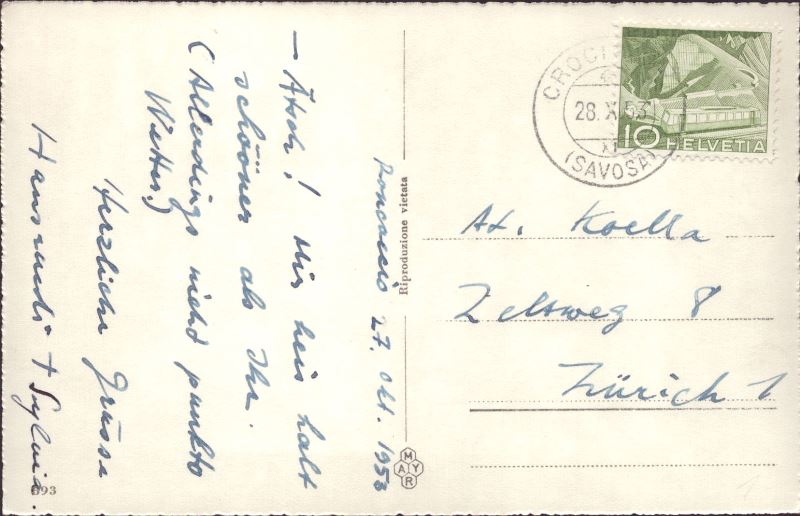 Porcaccio 27. Okt. 1953
– Ätsch! Mir heis halt
schööner als Ihr.
(Allerdings nicht punkto
Wetter.)
Herzliche Grüsse
Hansruedi + Sylvia.
Riproduzione vietata
MAYR
693
CROCI
28. X. 53
XI
(SAVOSA)
10 HELVETIA
At. Koella
Zeltweg 8
Zürich 1